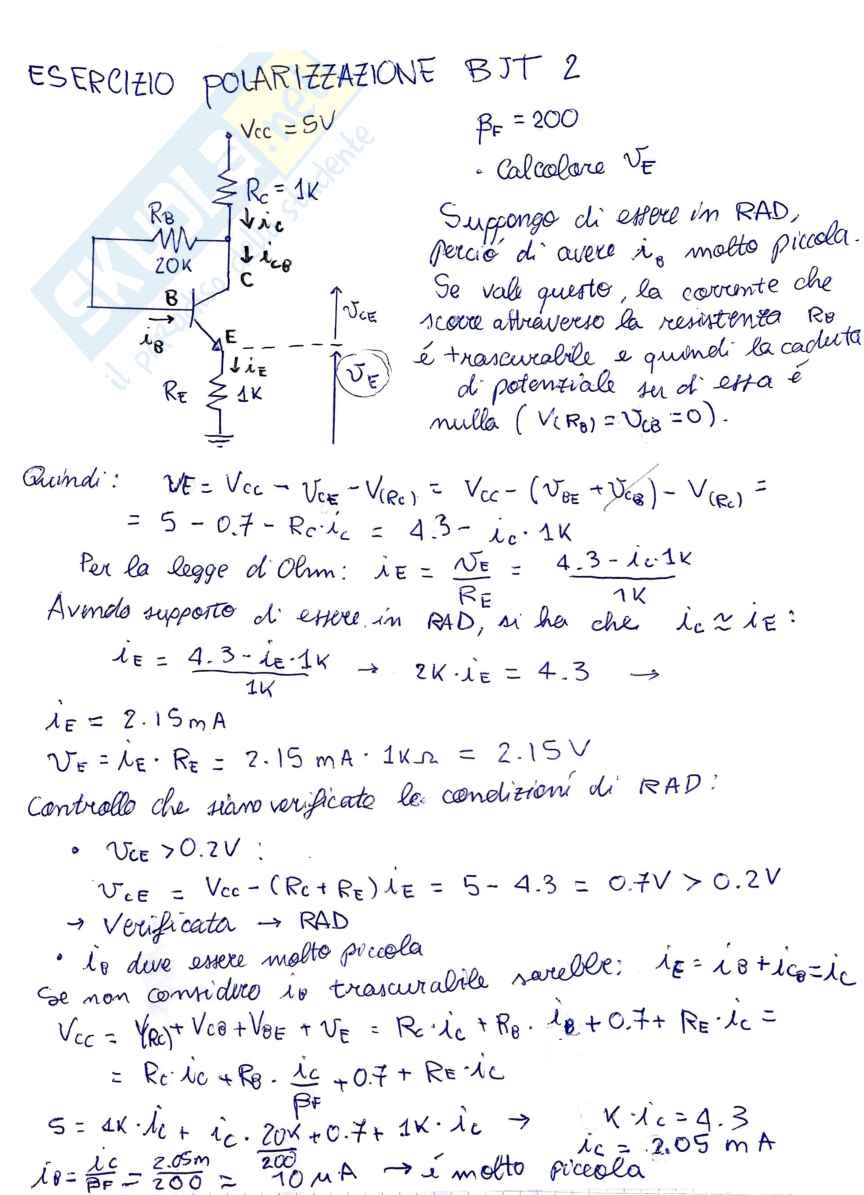 ESERCIZIO POLARIZZAZIONE BJT 2
SKUOLA.net
il paradiso dello studente
Vcc = 5V
RC = 1K
↓ iC
RB
20K
↓ iCB
C
B
→
iB
E
↓ iE
RE
1K
VCE
VE
βF = 200
• Calcolare VE
Suppongo di essere in RAD,
perció di avere iB molto piccola.
Se vale questo, la corrente che
scorre attraverso la resistenza RB
é trascurabile e quindi la caduta
di potenziale su di essa é
nulla ( V(RB) = VCB = 0 ).
Quindi: VE = Vcc - VCE - V(RC) = Vcc - (VBE + VCB) - V(RC) =
= 5 - 0.7 - RC·iC = 4.3 - iC · 1K
Per la legge di Ohm: iE = VE/RE = (4.3 - iC·1K)/1K
Avendo supposto di essere in RAD, si ha che iC ≃ iE :
iE = (4.3 - iE·1K)/1K → 2K·iE = 4.3 →
iE = 2.15mA
VE = iE · RE = 2.15 mA · 1KΩ = 2.15V
Controllo che siano verificate le condizioni di RAD:
• VCE > 0.2V :
VCE = Vcc - (RC + RE) iE = 5 - 4.3 = 0.7V > 0.2V
→ Verificata → RAD
• iB deve essere molto piccola
Se non considero iB trascurabile sarebbe: iE = iB + iCB = iC
Vcc = V(RC) + VCB + VBE + VE = RC · iC + RB · iB + 0.7 + RE · iC =
= RC·iC + RB · iC/βF + 0.7 + RE·iC
5 = 1K·iC + iC · 20K/200 + 0.7 + 1K · iC → K·iC = 4.3
iC = 2.05 mA
iB = iC/βF = 2.05m/200 = 10 μA → é molto piccola